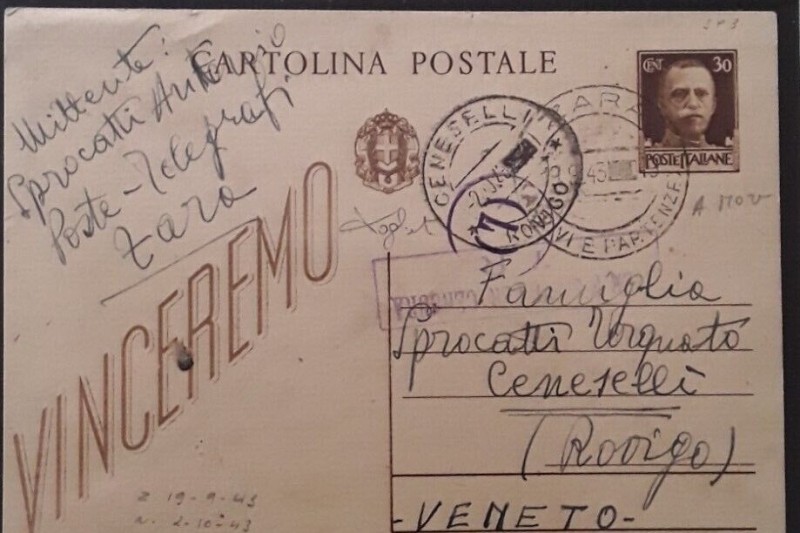 CARTOLINA POSTALE
Mittente:
Sprocatti Antonio
Poste-Telegrafi
Zara
CENT 30
POSTE ITALIANE
CENESELLI
ROVIGO
ZARA
19.9.43
ARRIVI E PARTENZE
VINCEREMO
Famiglia
Sprocatti Torquato
Ceneselli
(Rovigo)
-VENETO-
Z 19-9-43
N. 2-10-43